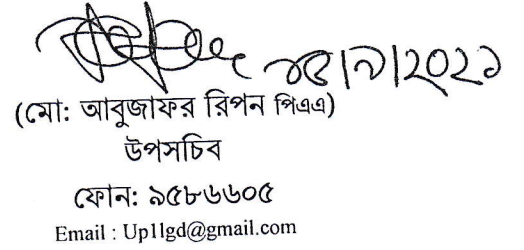 ১৫|৯|২০২১
(মো: আবুজাফর রিপন পিএএ)
উপসচিব
ফোন: ৯৫৮৬৬০৫
Email : Up1lgd@gmail.com